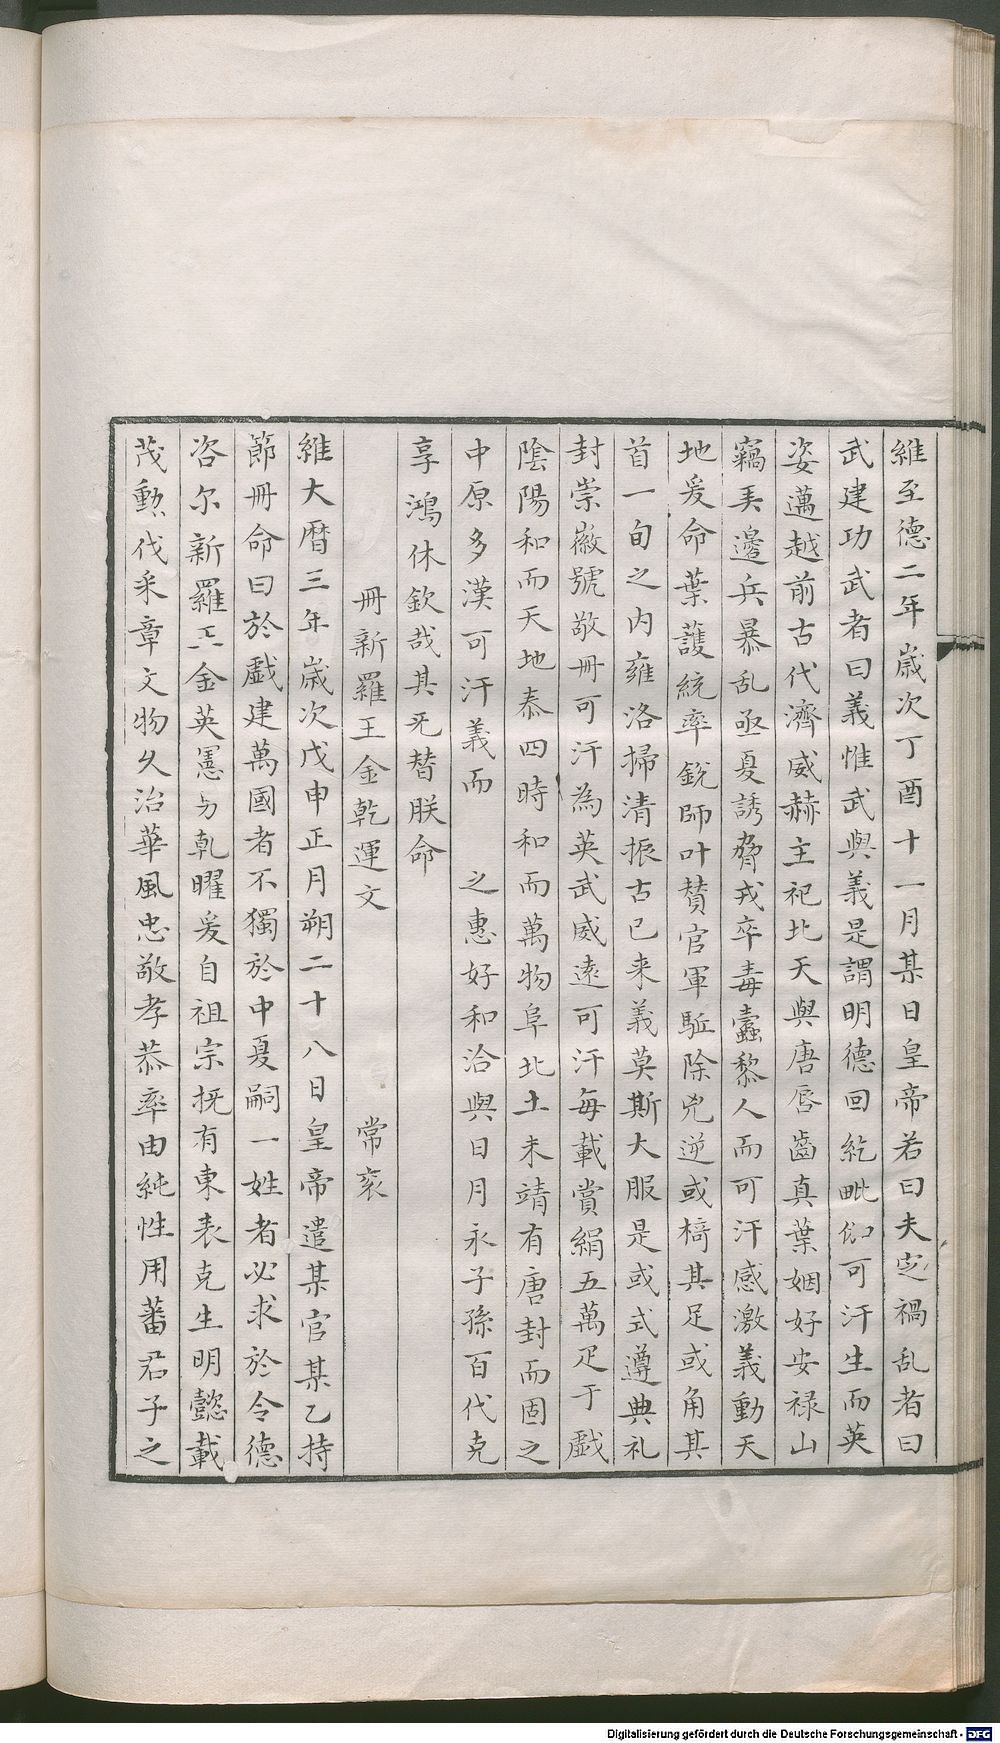 維至德二年歲次丁酉十一月某日皇帝若曰夫定禍乱者曰
武建功武者曰義惟武與義是謂明德回紇毗伽可汗生而英
姿邁越前古代濟威赫主祀北天與唐唇齒真葉姻好安禄山
竊弄邊兵暴乱亟夏誘脅戎卒毒蠹黎人而可汗感激義動天
地爰命葉護統率銳師叶賛官軍駈除兇逆或犄其足或角其
首一旬之内雍洛掃清振古已来義莫斯大服是或式遵典礼
封崇徽號敬冊可汗為英武威遠可汗每載賞絹五萬疋于戲
陰陽和而天地泰四時和而萬物阜北土未靖有唐封而固之
中原多漢可汗義而 之惠好和洽與日月永子孫百代克
享鴻休欽哉其旡替朕命
冊新羅王金乾運文 常衮
維大曆三年歲次戊申正月朔二十八日皇帝遣某官某乙持
節冊命曰於戲建萬國者不獨於中夏嗣一姓者必求於令德
咨尔新羅王金英憲男乹曜爰自祖宗抚有東表克生明懿載
茂勳代釆章文物久洽華風忠敬孝恭率由純性用蕃君子之
Digitalisierung gefördert durch die Deutsche Forschungsgemeinschaft - DFG